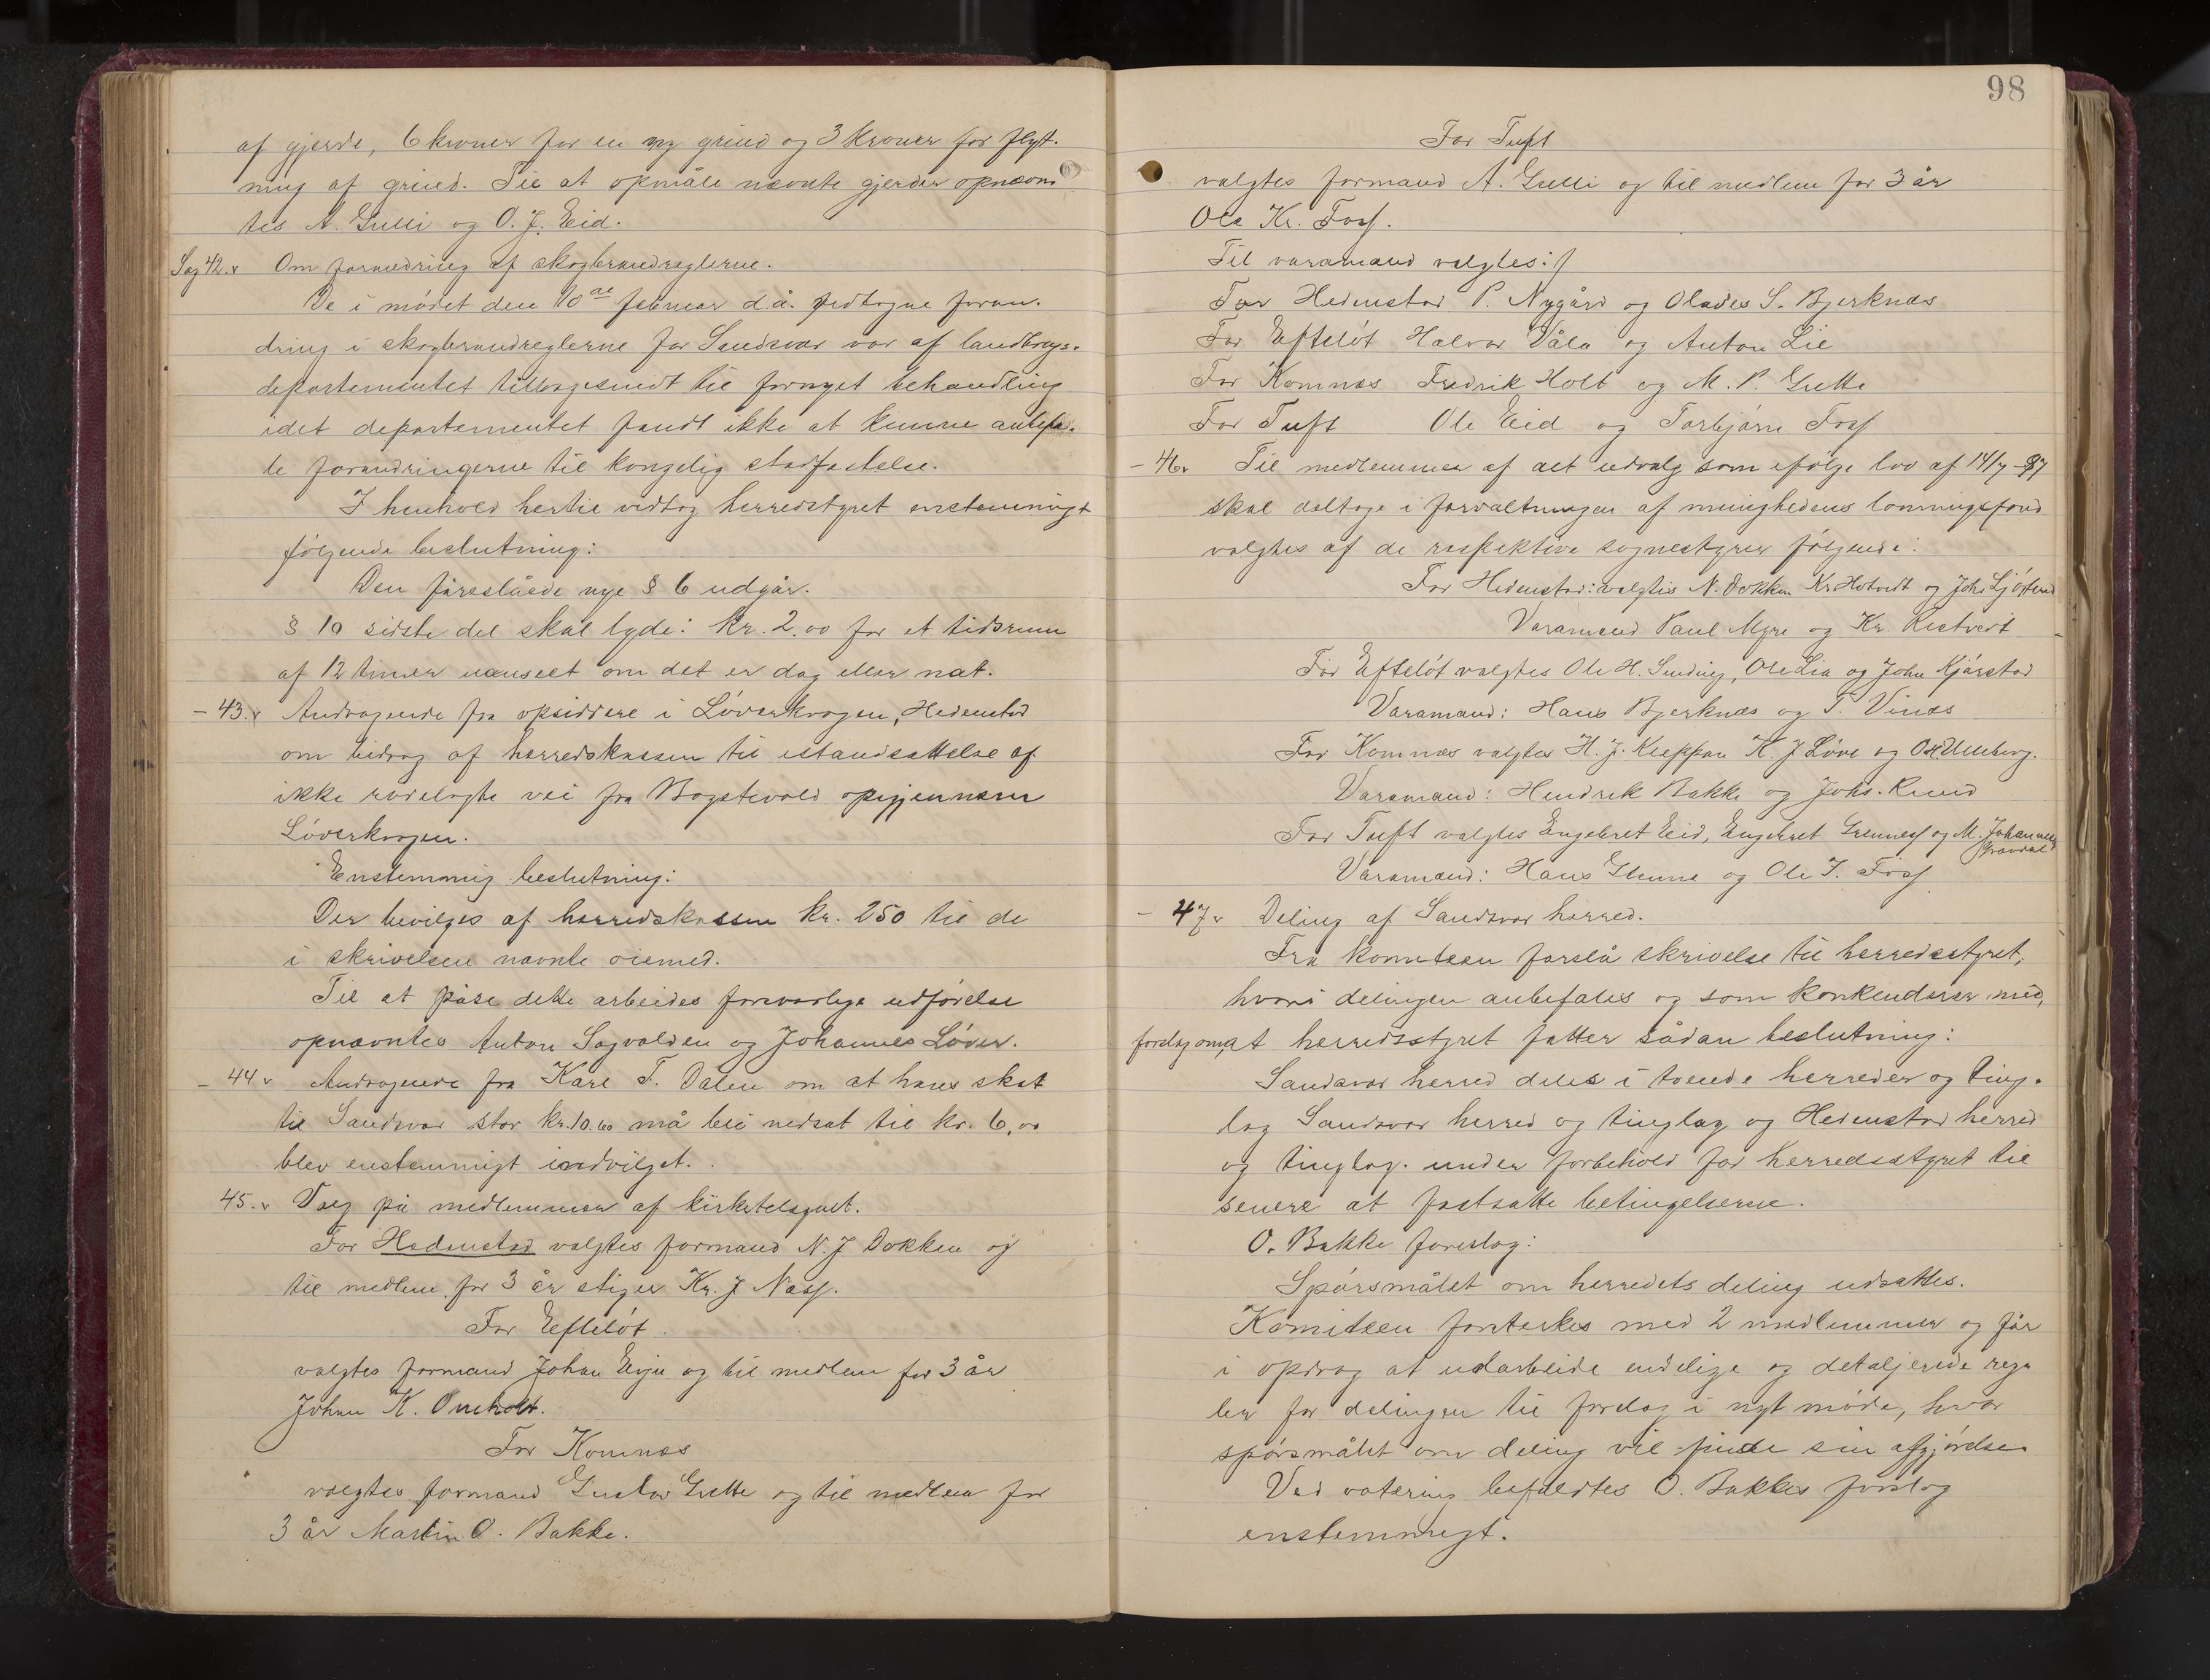 af gjerde, 6 kroner for en ny grind og 3 kroner for flyt-
ning af grind. Til at opmåle nævnte gjerder opnævn
tes A. Gulli og O. J. Eid.
Sag 42. Om forandring af skogbrandreglerne.
De i mødet den 10de februar d.å. vedtagne foran-
dring i skogbrandreglerne for Sandsvær var af landbrugs-
departementet tilbagesendt til fornyet behandling
idet departementet fandt ikke at kunne anbefa-
le forandringerne til kongelig stadfæstelse.
I henhold hertil vedtog herredstyret enstemmigt
følgende beslutning:
Den føreslåede nye § 6 udgår.
§ 10 sidste del skal lyde: kr. 2.00 for et tidsrum
af 12 timer uanseet om det er dag eller nat.
- 43. Andragende fra opsiddere i Løverkragen, Hedenstad
om bidrag af herredskassen til istandsættelse af
ikke rodelagte vei fra Bogstevold opigjennem
Løverkragen.
Enstemmig beslutning:
Der bevilges af herredskassen kr. 250 til de
i skrivelsen nævnte øiemed.
Til at påse dette arbeides forsvarlige udførelse
opnævntes Anton Sagvolden og Johannes Løver.
- 44 Andragende fra Karl T. Dalen om at hans skat
til Sandsvær stor kr. 10.60 må bli nedsat til kr. 6,00
blev enstemmigt indvilget.
45. Valg på medlemmer af kirketilsynet.
For Hedenstad valgtes formand N. J Dokken og
til medlem for 3 år stiger Kr. J Næss.
For Efteløt
valgtes formand Johan Evju og til medlem for 3 år
Johan K. Omholt.
For Komnæs
valgtes formand Gustav Grette og til medlem for
3 år Martin O. Bakke.
98
For Tuft
valgtes formand A. Gulli og til medlem for 3 år
Ole Kr. Foss.
Til varamænd valgtes:
For Hedenstad P. Nygård og Olaves S. Bjerknæs
For Efteløt Halvor Våla og Anton Lie
For Komnæs Fredrik Holt og M. P. Grette
For Tuft Ole Eid og Torbjørn Foss
- 46. Til medlemmer af det udvalg som ifølge lov af 14/7-97
skal deltage i forvaltningen af menighedens lønningsfond
valgtes af de respektive sognestyrer følgende:
For Hedenstad: valgtes N. Dokken Kr. Hotvedt og Johs Ljøterud
Varamænd Paul Myre og Kr. Kistvedt
For Efteløt valgtes Ole H. Sending, Ole Lia og John Kjørstad
Varamænd: Hans Bjerknæs og T. Vinæs
For Komnæs valgtes H. J. Kleppan K J Løve og O. H. Ulleberg.
Varamænd: Hendrik Bakke og Johs. Ruud
For Tuft valgtes Engebret Eid, Engebret Grennes og M. Johannes
Gravdal
Varamænd: Hans Glenne og Ole T. Foss
- 47 Deling af Sandsvær herred.
Fra komiteen forelå skrivelse til herredsstyret,
hvori delingen anbefales og som konkluderer med,
forslag om, at herredsstyret fatter sådan beslutning:
Sandsvær herred deles i tvende herreder og ting-
lag Sandsvær herred og tinglag og Hedenstad herred
og tinglag. under forbehold for herredsstyret til
senere at fastsætte betingelserne.
O. Bakke foreslog:
Spørsmålet om herredets deling udsættes.
Komiteen forsterkes med 2 medlemmer og får
i opdrag at udarbeide endelige og detaljerede reg-
ler for delingen til forelæg i nyt møde, hvor
spørsmålet om deling vil finde sin afgjørelse.
Ved votering befaldtes O. Bakkes forslag
enstemmigt.